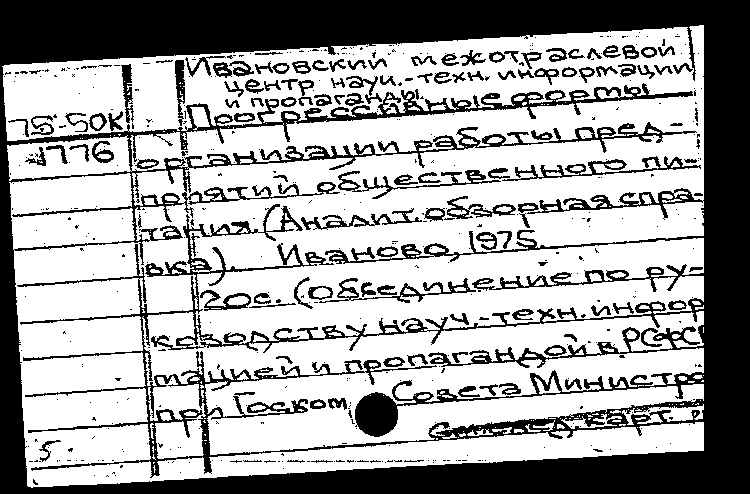 Ивановский межотраслевой
центр науч.-техн. информации
и пропаганды.
75-50К Прогрессивные формы
1776 организации работы пред-
приятий общественного пи-
тания. (Аналит. обзорная спра-
вка). Иваново, 1975.
20с. (Объединение по ру-
ководству науч.-техн. инфор
мацией и пропагандой в РСФСР
при Госком Совета Министро
след. карт.
5